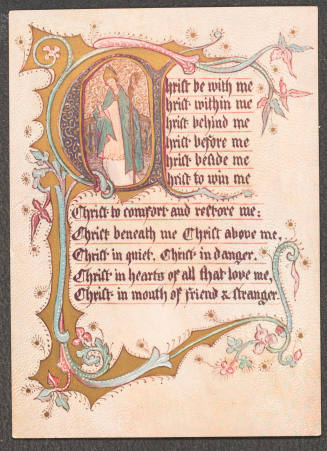 Christ be with me
hrist within me
hrist behind me
hrist before me
hrist beside me
hrist to win me
Christ to comfort and restore me:
Christ beneath me Christ above me,
Christ in quiet, Christ in danger,
Christ in hearts of all that love me,
Christ in mouth of friend & stranger.